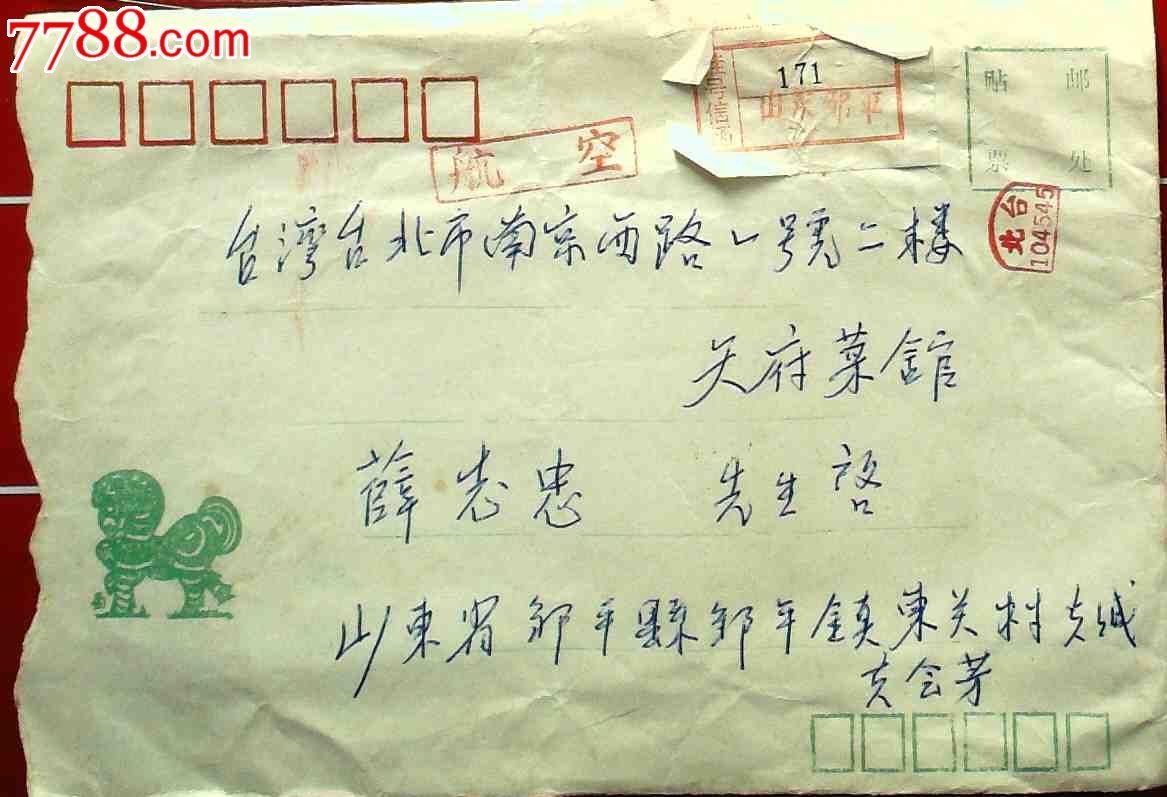 7788.com
171
山东邹平
航 空
贴 邮
票 处
台北
104545
台湾台北市南京西路1號二楼
天府菜館
薛志忠 先生 啓
山東省邹平縣邹平鎮東关村
会芳